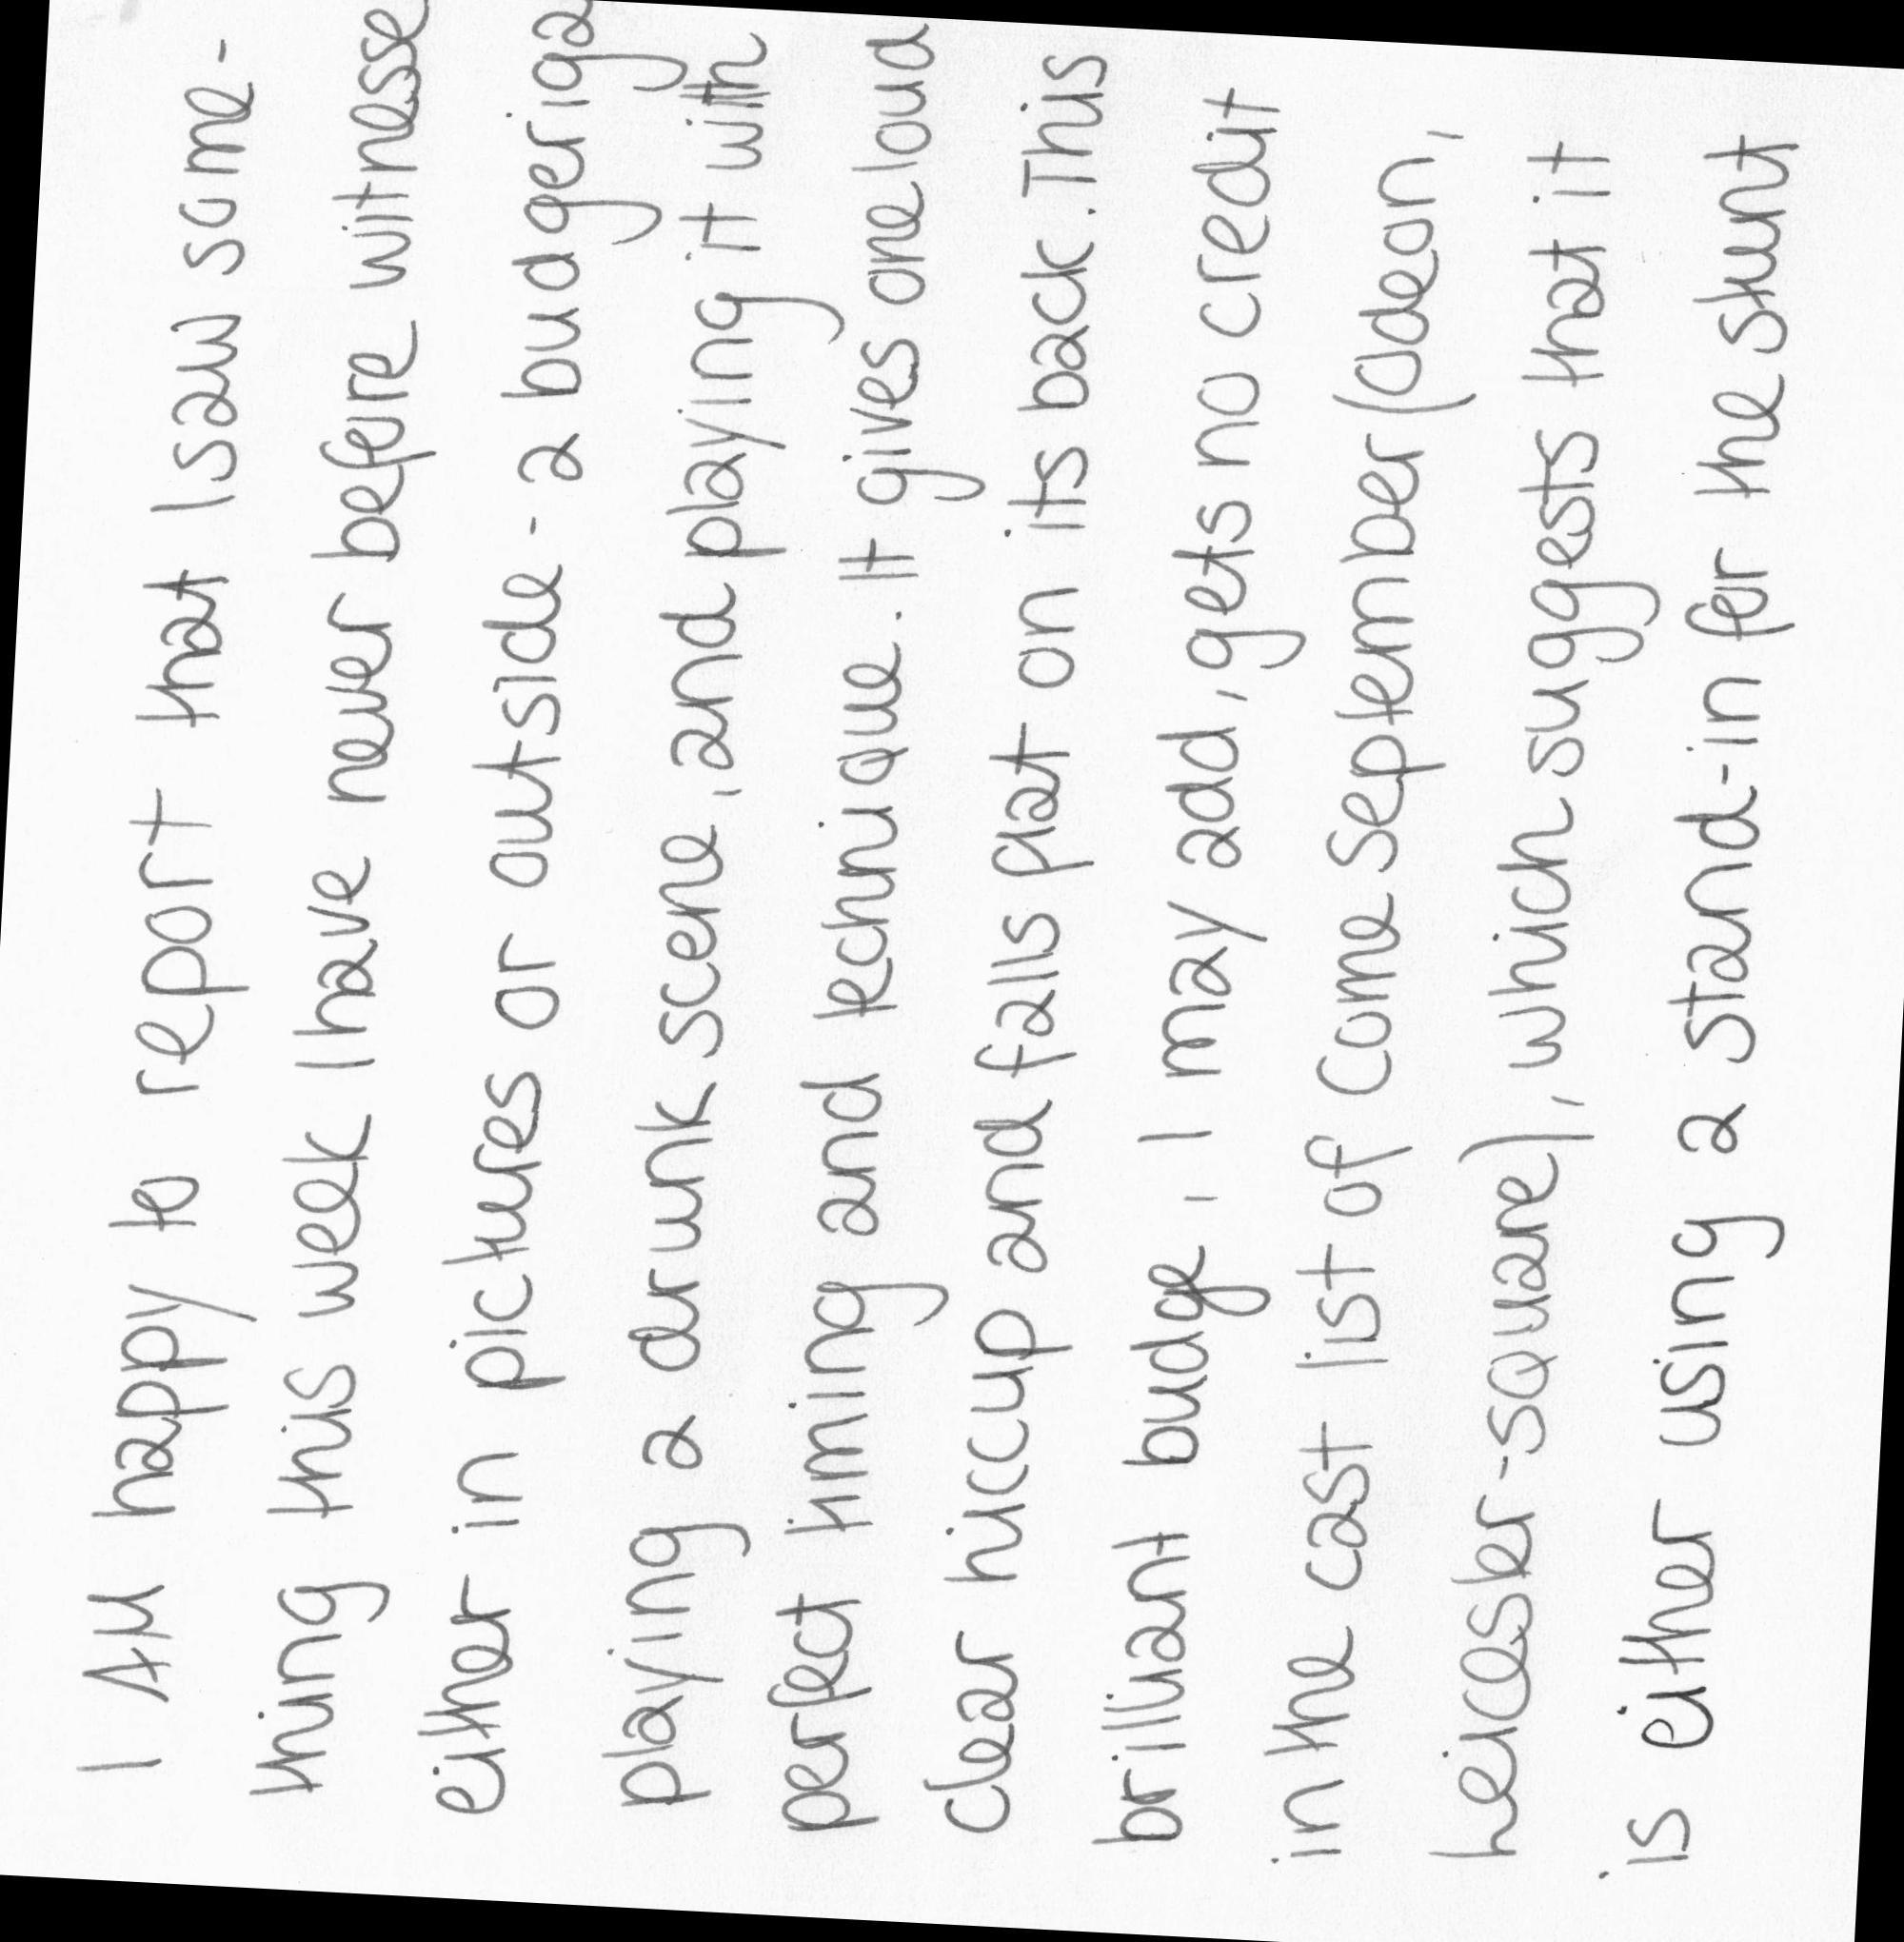 I AM happy to report that I saw some-
thing this week I have never before witnesse
either in pictures or outside - a budgeriga
playing a drunk scene, and playing it with
perfect timing and technique. It gives one loud
clear hiccup and falls flat on its back. This
brilliant budge, I may add, gets no credit
in the cast list of Come September (Odeon,
heicester-square), which suggests that it
is either using a stand-in for the stunt